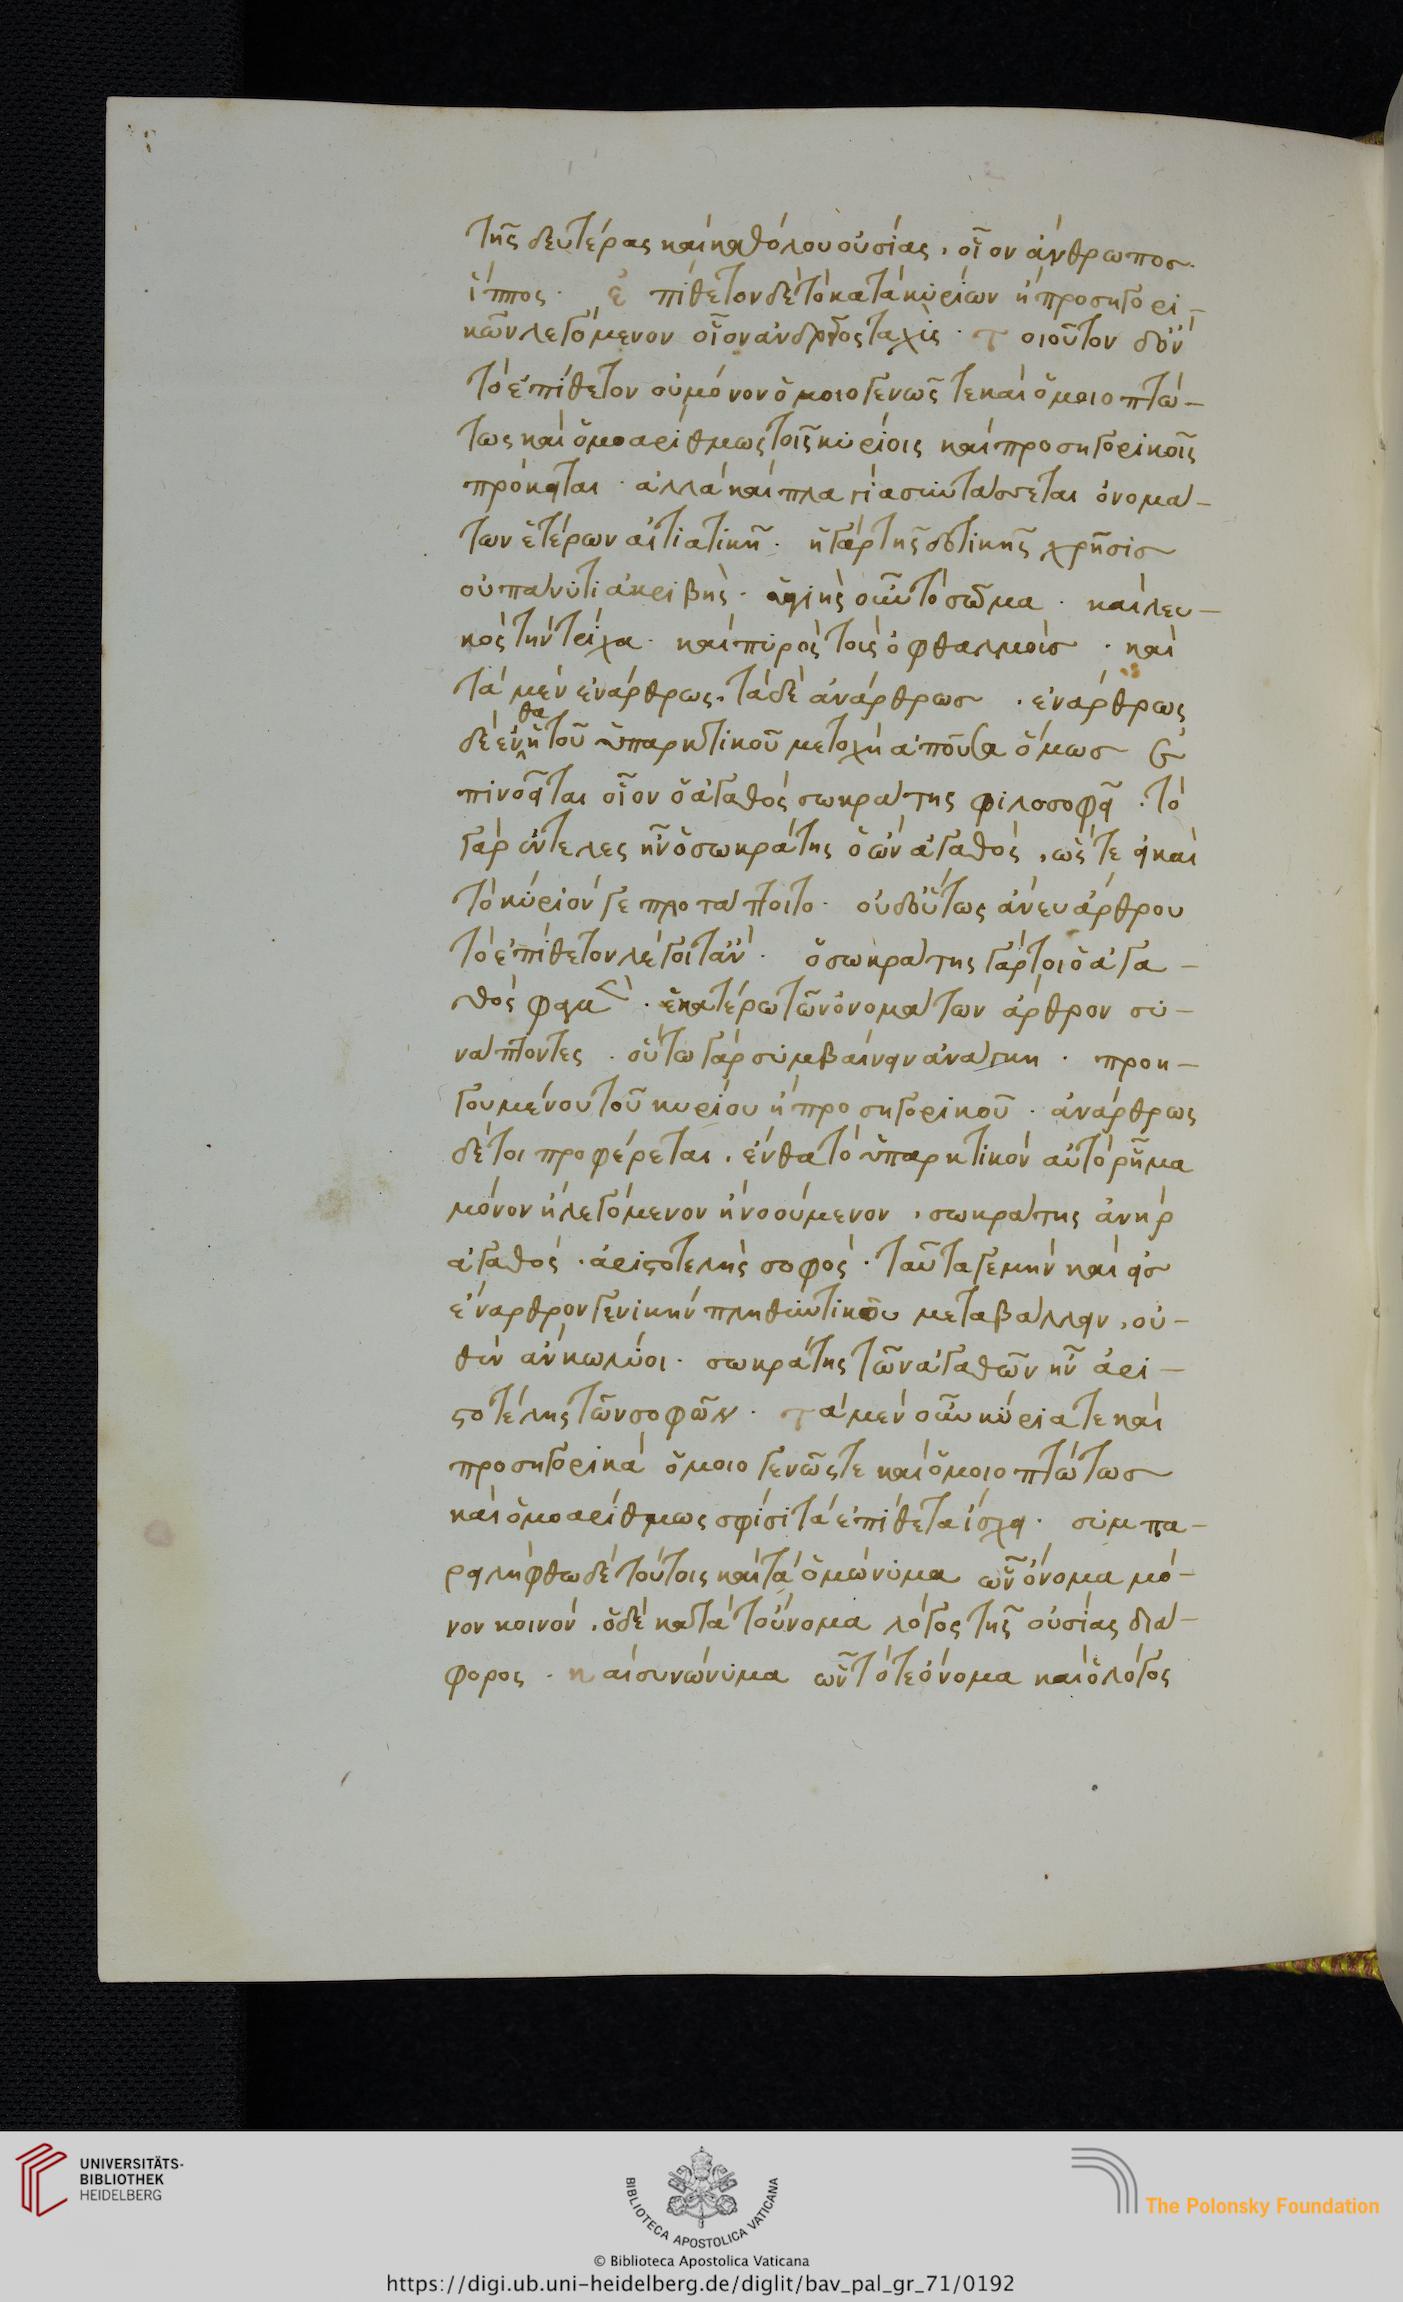 τῆς δευτέρας καὶ καθόλου οὐσίας, οἷον ἄνθρωπος.
ἵππος. ἐπίθετον δὲ τὸ κατὰ κυρίων ἢ προσηγορι-
κῶν λεγόμενον οἷον ἀνδρεῖος ταχὺς. τοιοῦτον δ' οὖν
τὸ ἐπίθετον οὐ μόνον ὁμοιογενῶς τε καὶ ὁμοιοπτώ-
τως καὶ ὁμοαρίθμως τοῖς κυρίοις καὶ προσηγορικοῖς
πρόκειται. ἀλλὰ καὶ πλαγία συντάσσεται ὀνομά-
των ἑτέρων αἰτιατικῆ. ἡ γὰρ τῆς δοτικῆς χρῆσις
οὐ πάνυ τι ἀκριβὴς. ὑγιὴς οὖν τὸ σῶμα. καὶ λευ-
κὸς τὴν τρίχα. καὶ πυρὸς τοῖς ὀφθαλμοῖς. καὶ
τὰ μὲν ἐνάρθρως. τὰ δὲ ἀνάρθρως. ἐνάρθρως
δὲ ἔνθα ἡ τοῦ ὑπαρκτικοῦ μετοχὴ ἀποῦσα ὅμως ἐ
πινοεῖται οἷον ὁ ἀγαθὸς σωκράτης φιλοσοφεῖ. τὸ
γὰρ ἐντελὲς ἦν ὁ σωκράτης ὁ ὢν ἀγαθὸς, ὥστε εἰ καὶ
τὸ κύριόν γε προτάττοιτο. οὐδ' οὕτως ἄνευ ἄρθρου
τὸ ἐπίθετον λέγοιτ' ἄν. ὁ σωκράτης γάρ τοι ὁ ἀγα-
θὸς φαμὲν. ἑκατέρω τῶν ὀνομάτων ἄρθρον συ-
νάπτοντες. οὕτω γὰρ συμβαίνειν ἀνάγκη. προη-
γουμένου τοῦ κυρίου ἢ προσηγορικοῦ. ἀνάρθρως
δέ τοι προφέρεται. ἔνθα τὸ ὑπαρκτικὸν αὐτὸ ῥῆμα
μόνον ἢ λεγόμενον ἢ νοούμενον, σωκράτης ἀνὴρ
ἀγαθὸς. ἀριστοτέλης σοφὸς. ταῦτα γε μὴν καὶ εἰς
ἔναρθρον γενικὴν πληθυντικοῦ μεταβάλλειν, οὐ-
θὲν ἂν κωλύοι. σωκράτης τῶν ἀγαθῶν ἦν ἀρι-
στοτέλης τῶν σοφῶν. τὰ μὲν οὖν κύρια τε καὶ
προσηγορικὰ ὁμοιογενῶς τε καὶ ὁμοιοπτώτως
καὶ ὁμοαρίθμως σφίσι τὰ ἐπίθετα ἴσχει. συμπα-
ρειλήφθω δὲ τούτοις καὶ τὰ ὁμώνυμα ὧν ὄνομα μό-
νον κοινὸν. ὁ δὲ κατὰ τοὔνομα λόγος τῆς οὐσίας διά-
φορος. καὶ συνώνυμα ὧν τό τε ὄνομα καὶ ὁ λόγος
UNIVERSITÄTS-
BIBLIOTHEK
HEIDELBERG
BIBLIOTECA APOSTOLICA VATICANA
The Polonsky Foundation
© Biblioteca Apostolica Vaticana
https://digi.ub.uni-heidelberg.de/diglit/bav_pal_gr_71/0192